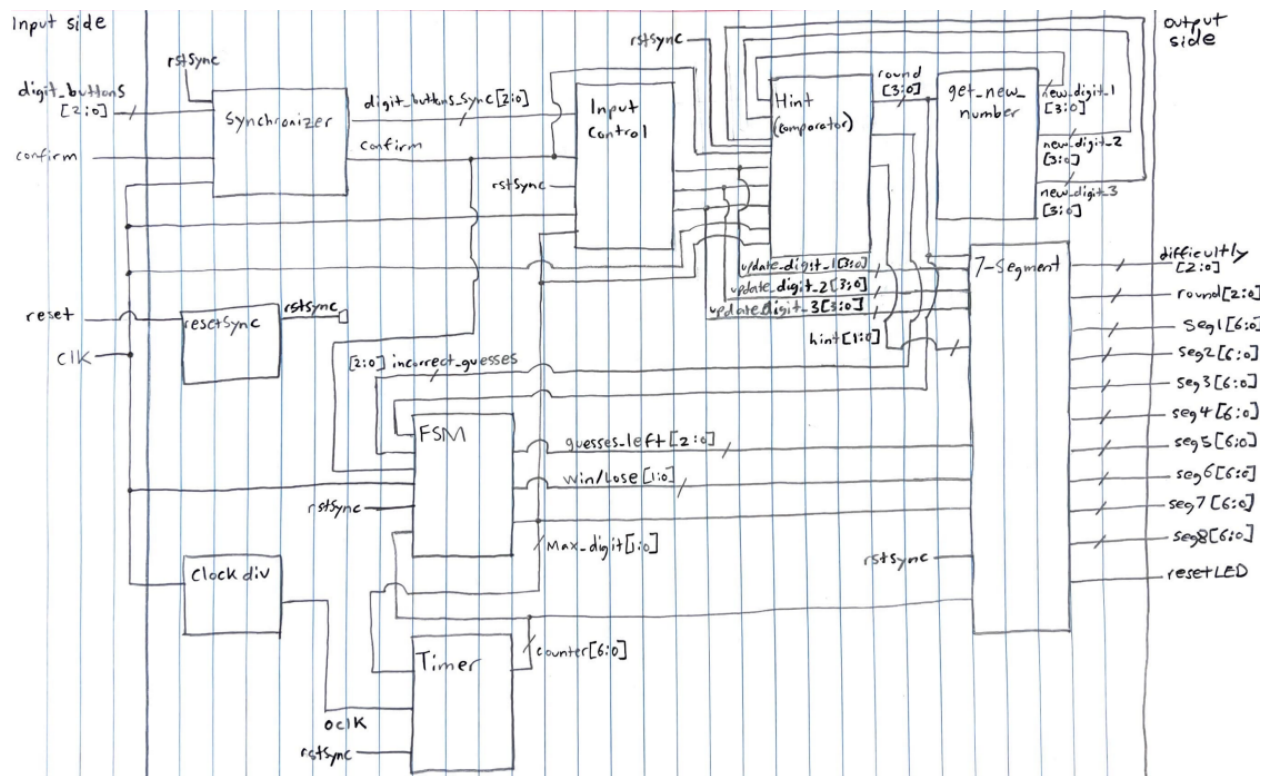 Input side
output
side
rstSync
rstSync
digit_buttons
[2:0]
Synchronizer
digit_buttons_Sync[2:0]
confirm
confirm
Input
Control
rstSync
Hint
(comparator)
round
[3:0]
get_new_
number
new_digit_1
[3:0]
new_digit_2
[3:0]
new_digit_3
[3:0]
update_digit_1[3:0]
update_digit_2[3:0]
update_digit_3[3:0]
hint[1:0]
7-Segment
difficultly
[2:0]
round[2:0]
Seg1[6:0]
seg2[6:0]
seg3[6:0]
seg4[6:0]
seg5[6:0]
seg6[6:0]
seg7[6:0]
seg8[6:0]
resetLED
reset
resetSync
rstSync
Clk
[2:0] incorrect_guesses
FSM
guesses_left[2:0]
Win/Lose[1:0]
rstSync
Max_digit[1:0]
rstSync
Clock div
Timer
Counter[6:0]
oclk
rstSync